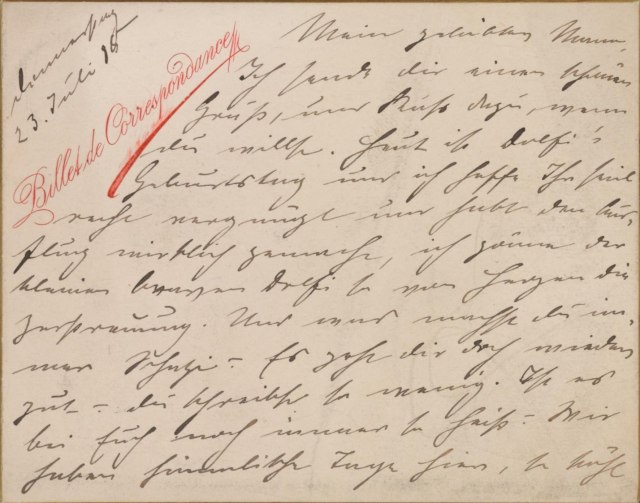 Donnerstag
23. Juli 18
Billet de Correspondance
Mein geliebter Mann,
Ich sende dir einen schönen
Gruß, und Kuss dazu, wenn
du willst. Heut ist Dolfi's
Geburtstag und ich hoffe Ihr seid
recht vergnügt und habt den Aus-
flug wirklich gemacht, ich gönne der
kleinen braven Dolfi so von Herzen die
Zerstreuung. Und was machst du im-
mer Schatzi - Es geht dir doch wieder
gut - du schreibst so wenig. Ist es
bei Euch noch immer so heiß - Wir
haben himmlische Tage hier, so kühl